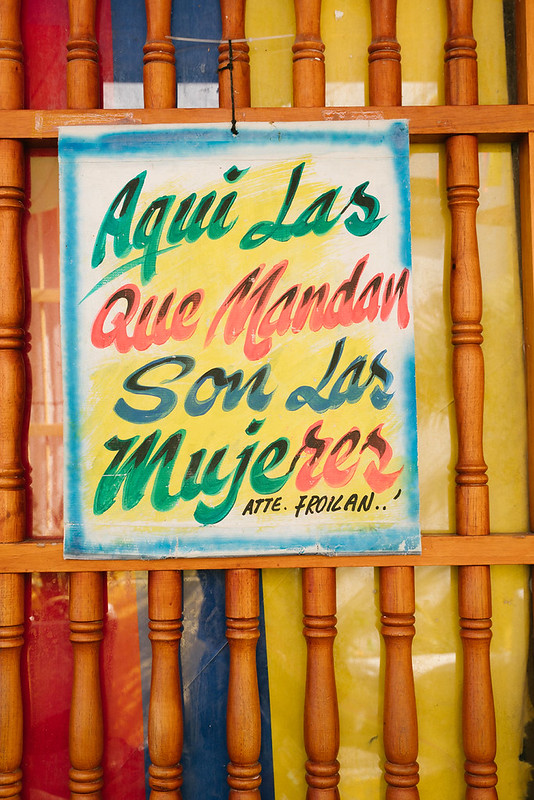 Aqui Las
Que Mandan
Son Las
Mujeres
ATTE. FROILAN..'